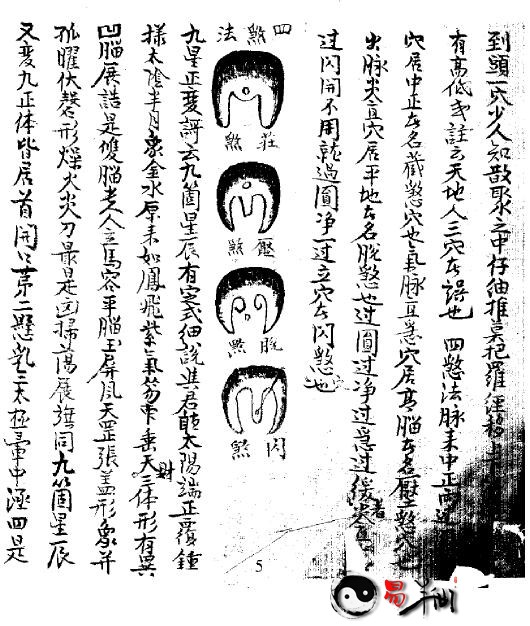 到頭一穴少人知散聚之中仔細推莫把羅經移上
有高低或註云天地人三穴者誤也 四煞法脉來中正而
穴居中正者名藏煞穴也氣脉直急穴居高腦者名壓煞穴也
出脉尖直穴居平地者名脫煞也过圓过净过急过緩
过閃開不用就過圓净一过立穴者閃煞也
四煞法
莊煞
壓煞
脫煞
閃煞
九星正變謌云九箇星辰有定式細說與君聽太陽端正覆鐘
樣太陰半月象金水原來如鳳飛紫氣笏中垂天財三体形有異
凹腦展誥是雙腦老人立馬容平腦玉屏風天罡張盖形象并
孤曜伏磬形燥火尖刀最是凶掃蕩展旗同九箇星辰
又變九正体皆居首開口第二懸乳三太極壺中四是
5
易羊仙